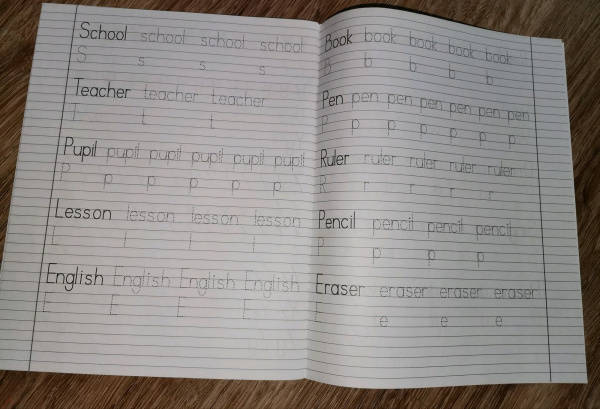 School school school school
S s s s
Teacher teacher teacher
T t t
Pupil pupil pupil pupil pupil pupil
P p p p p p
Lesson lesson lesson lesson
L l l l
English English English English
E E E E
Book book book book book
B b b b b
Pen pen pen pen pen pen pen
P p p p p p p
Ruler ruler ruler ruler ruler
R r r r r
Pencil pencil pencil pencil
P p p p
Eraser eraser eraser eraser
E e e e